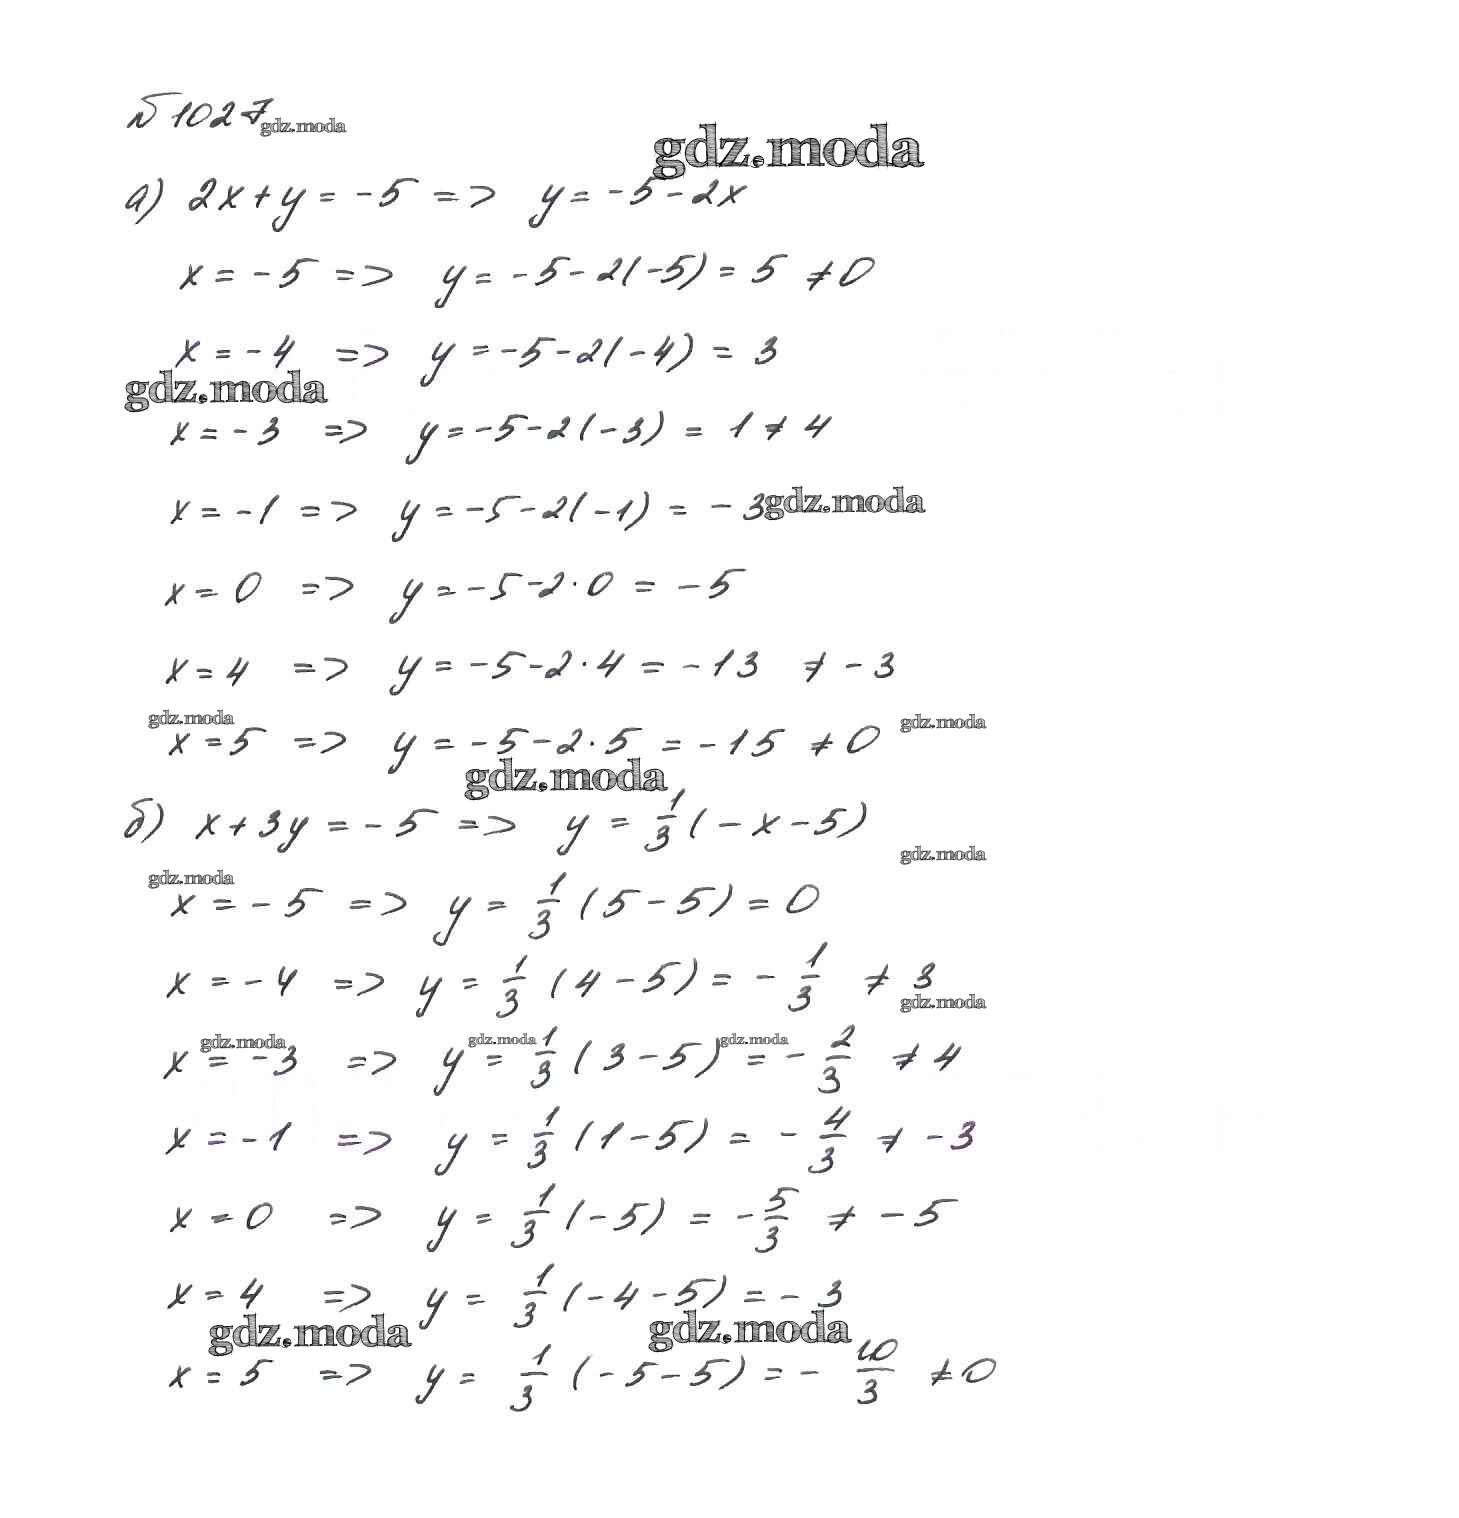 № 1027
gdz.moda
gdz.moda
а) 2x + y = -5 => y = -5 - 2x
x = -5 => y = -5 - 2(-5) = 5 ≠ 0
x = -4 => y = -5 - 2(-4) = 3
gdz.moda
x = -3 => y = -5 - 2(-3) = 1 ≠ 4
x = -1 => y = -5 - 2(-1) = -3
gdz.moda
x = 0 => y = -5 - 2·0 = -5
x = 4 => y = -5 - 2·4 = -13 ≠ -3
gdz.moda
gdz.moda
x = 5 => y = -5 - 2·5 = -15 ≠ 0
gdz.moda
б) x + 3y = -5 => y = 1/3 (-x - 5)
gdz.moda
gdz.moda
x = -5 => y = 1/3 (5 - 5) = 0
x = -4 => y = 1/3 (4 - 5) = - 1/3 ≠ 3
gdz.moda
gdz.moda gdz.moda gdz.moda
x = -3 => y = 1/3 (3 - 5) = - 2/3 ≠ 4
x = -1 => y = 1/3 (1 - 5) = - 4/3 ≠ -3
x = 0 => y = 1/3 (-5) = - 5/3 ≠ -5
x = 4 => y = 1/3 (-4 - 5) = -3
gdz.moda gdz.moda
x = 5 => y = 1/3 (-5 - 5) = - 10/3 ≠ 0